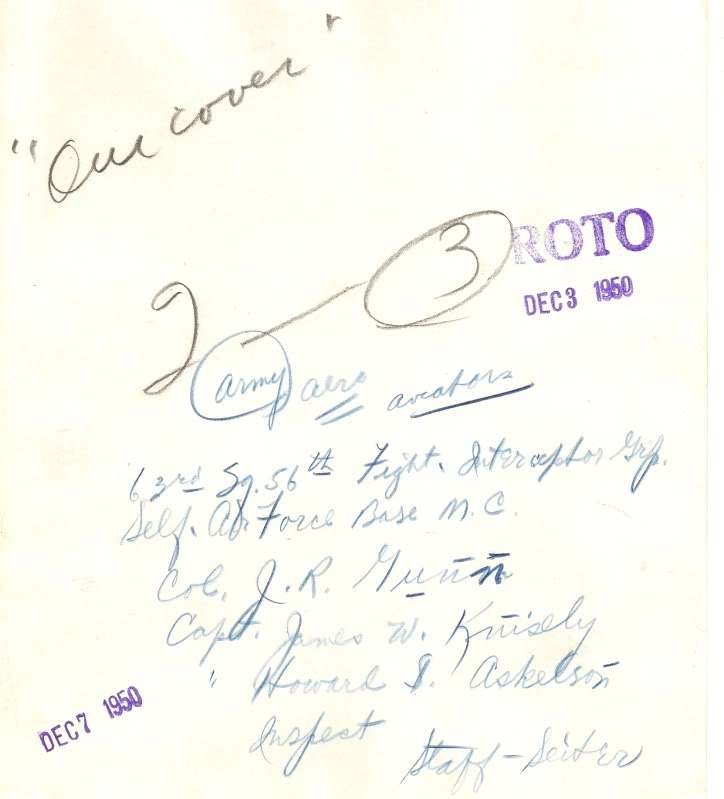 "Our cover"
2 — 3
ROTO
DEC 3 1950
army aero aviators
63rd Sq. 56th Fight. Interceptor Grp.
Self. Air Force Base M.C.
Col. J. R. Gunn
Capt. James W. Knisely
" Howard I. Askelson
Inspect
Staff - Seiter
DEC 7 1950